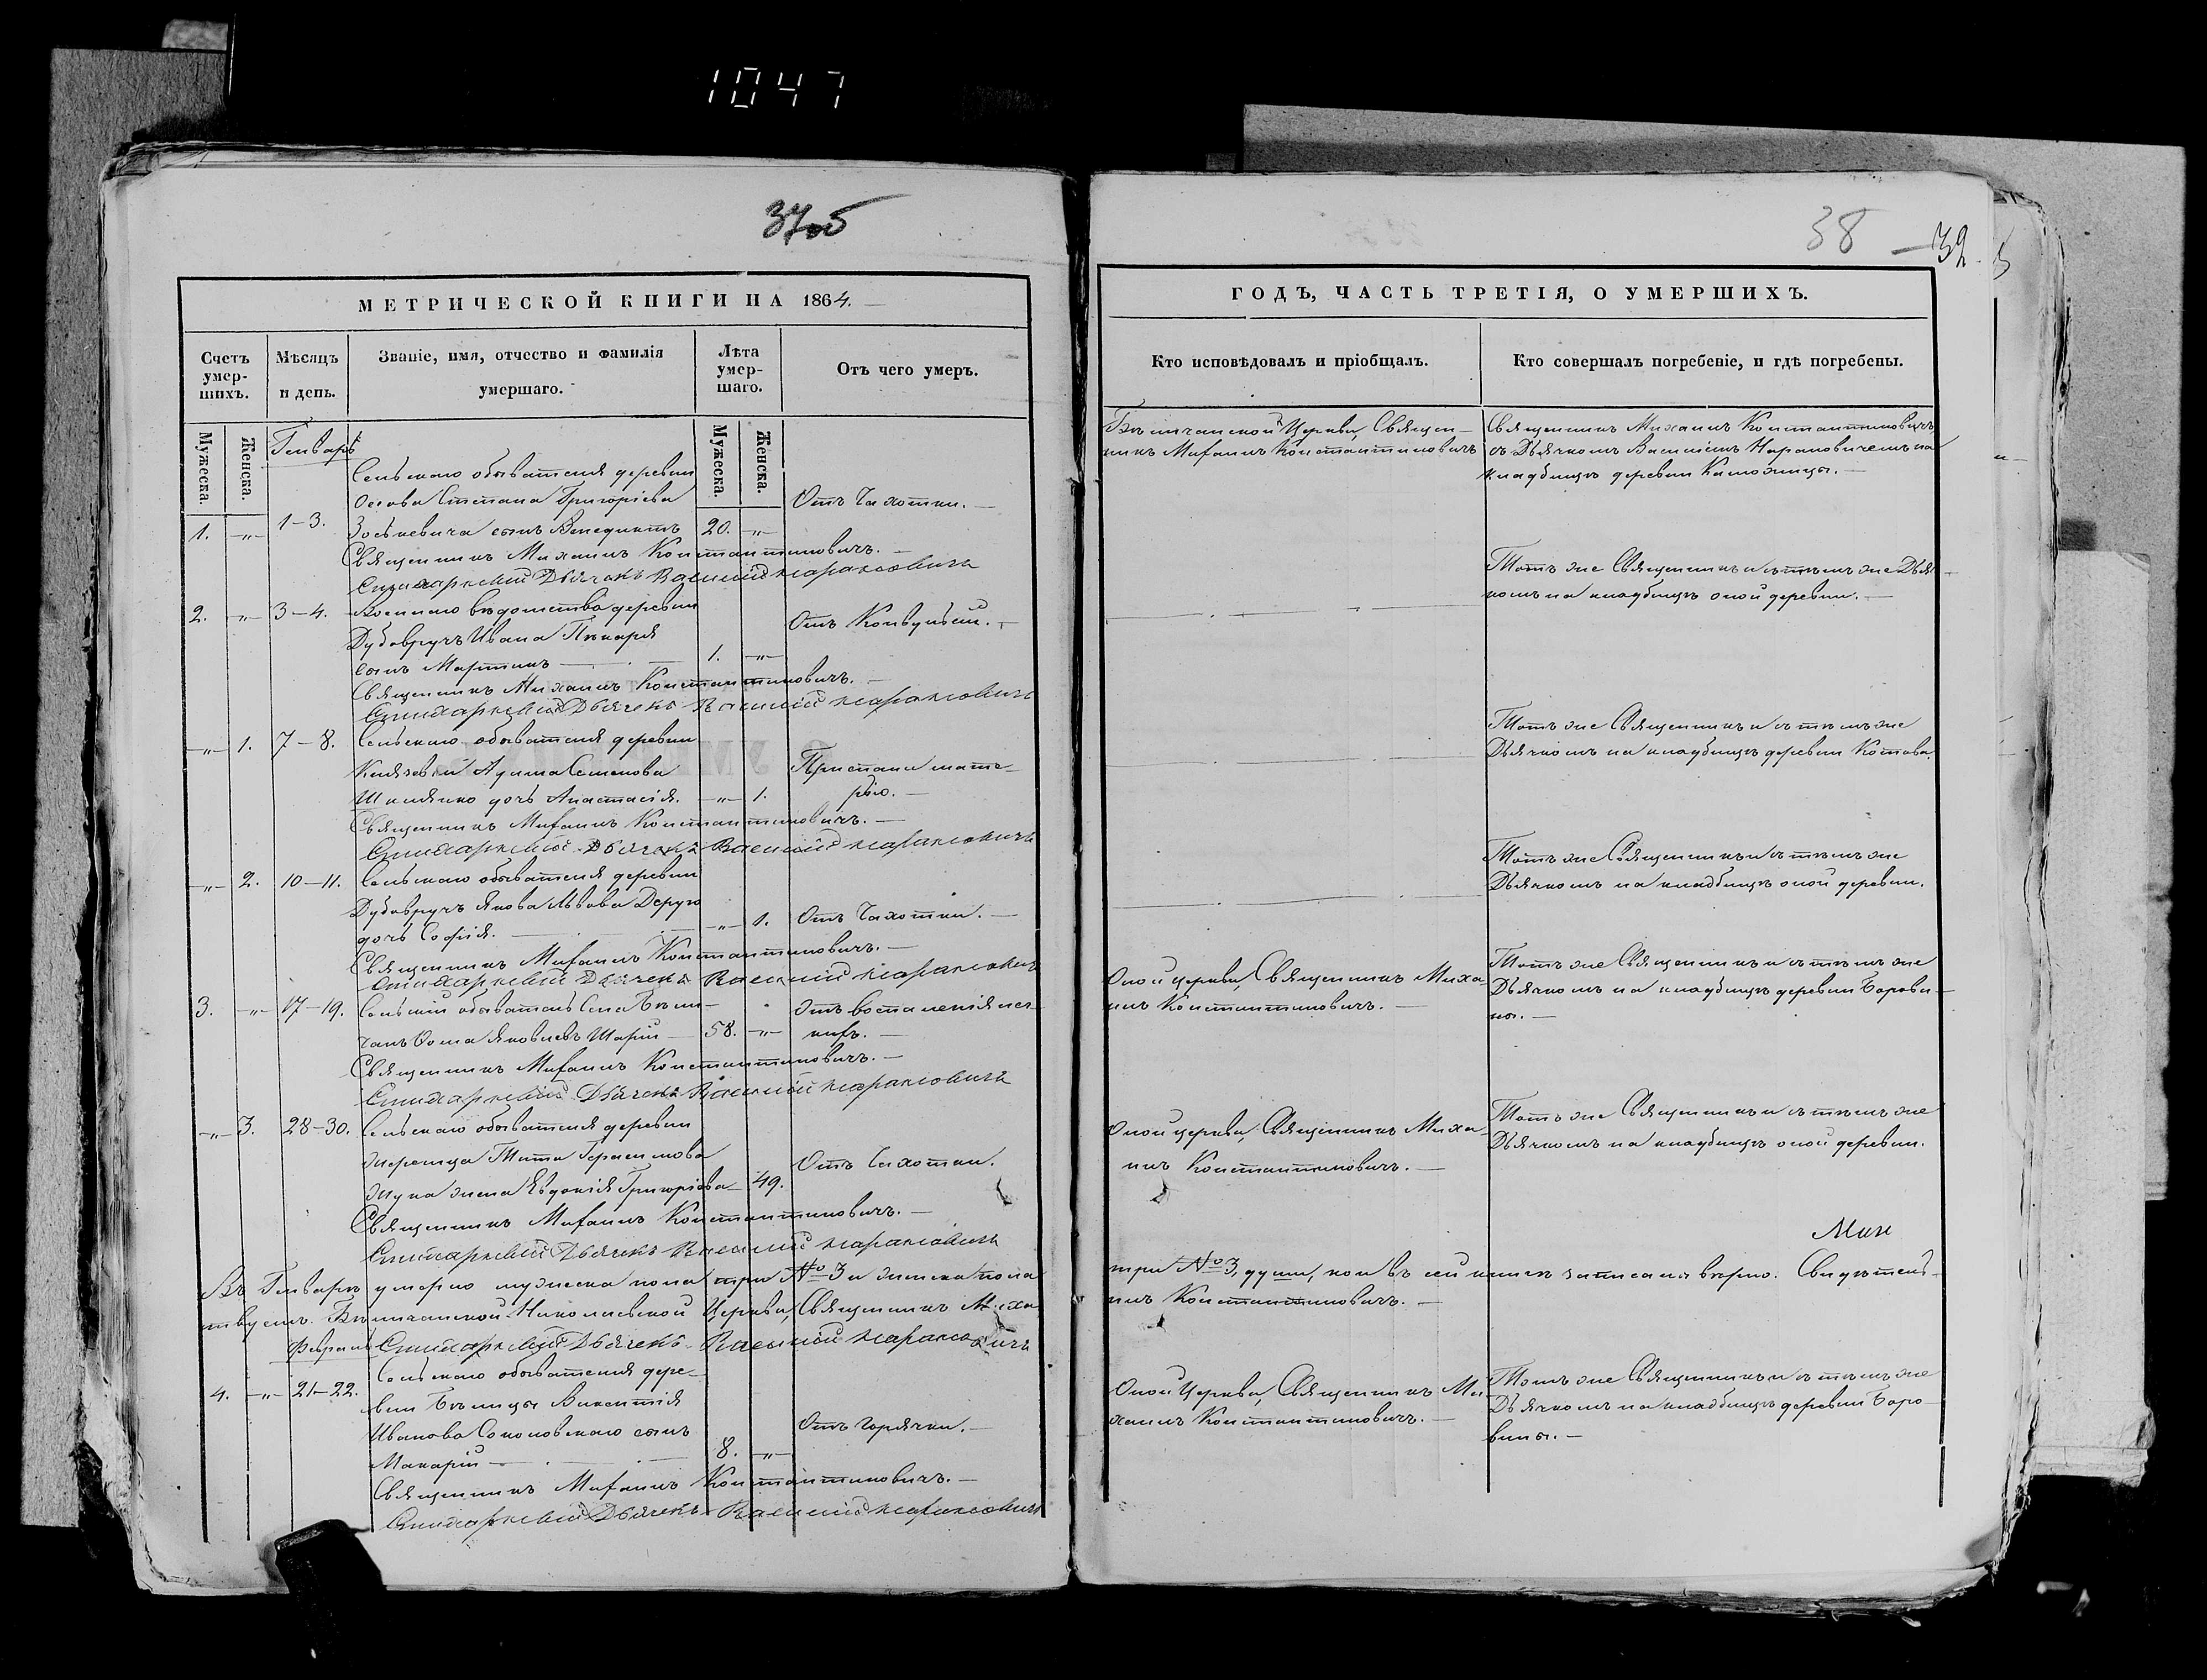 1047
37об
МЕТРИЧЕСКОЙ КНИГИ НА 1864.
Счетъ умер-шихъ.
Мѣсяцъ и день.
Званіе, имя, отчество и фамилія умершаго.
Лѣта умер-шаго.
Отъ чего умеръ.
Мужеска.
Женска.
Мужеска.
Женска.
Генварь
Сельскаго обывателя деревни
Осова Степана Григоріева
1. -„- 1-3. Зоськевича сынъ Венедиктъ 20. -„- Отъ Чахотки.
Священникъ Михаилъ Константиновичъ.
Дьячекъ Василій
2. -„- 3-4. Военнаго вѣдомства деревни
Дубовручъ Ивана Пѣкаря Отъ Конвульсіи.
сынъ Мартинъ 1. -„-
Священникъ Михаилъ Константиновичъ.
Дьячекъ Василій
-„- 1. 7-8. Сельскаго обывателя деревни
Князевки Адама Семенова Приспана мате-
дочь Анастасія. -„- 1. рью.
Священникъ Михаилъ Константиновичъ.
Дьячекъ Василій
-„- 2. 10-11. Сельскаго обывателя деревни
Дубовручъ Якова Львова Деруго
дочь Софія. -„- 1. Отъ Чахотки.
Священникъ Михаилъ Константиновичъ.
Дьячекъ Василій
3. -„- 17-19. Сельскій обыватель Села Бѣли- Отъ воспаленія лег-
чанъ Ѳома Яковлевъ Шарій 58. -„- кихъ.
Священникъ Михаилъ Константиновичъ.
Дьячекъ Василій
-„- 3. 28-30. Сельскаго обывателя деревни
Жеремца Тита Герасимова Отъ Чахотки.
Жука жена Евдокія Григоріева 49.
Священникъ Михаилъ Константиновичъ.
Дьячекъ Василій
Въ Генварѣ умерло мужеска пола три № 3 и женска пола
твуемъ. Николаевской Церкви, Священникъ Миха
Февраль Дьячекъ Василій
Сельскаго обывателя дере-
4. -„- 21-22. вни Викентія
Иванова Соколовскаго сынъ Отъ Горячки.
Макарій 8. -„-
Священникъ Михаилъ Константиновичъ.
Дьячекъ Василій
38 32
ГОДЪ, ЧАСТЬ ТРЕТІЯ, О УМЕРШИХЪ.
Кто исповѣдовалъ и пріобщалъ.
Кто совершалъ погребеніе, и гдѣ погребены.
Церкви, Священ-
никъ Михаилъ Константиновичъ
Священникъ Михаилъ Константиновичъ
съ Дьячкомъ Василіемъ на
кладбищѣ деревни
Тотъ же Священникъ и съ тѣмъ же Дьяч-
комъ на кладбищѣ оной деревни.
Тотъ же Священникъ и съ тѣмъ же
Дьячкомъ на кладбищѣ деревни Котова.
Тотъ же Священникъ и съ тѣмъ же
Дьячкомъ на кладбищѣ оной деревни.
Оной церкви, Священникъ Миха
илъ Константиновичъ.
Тотъ же Священникъ и съ тѣмъ же
Дьячкомъ на кладбищѣ деревни Борови-
ны.
Оной церкви, Священникъ Миха
илъ Константиновичъ.
Тотъ же Священникъ и съ тѣмъ же
Дьячкомъ на кладбищѣ оной деревни.
три № 3, души, кои въ сей книгѣ записаны вѣрно. Свидѣтель-
илъ Константиновичъ.
Оной Церкви, Священникъ Ми
хаилъ Константиновичъ.
Тотъ же Священникъ и съ тѣмъ же
Дьячкомъ на кладбищѣ деревни Боро-
вины.